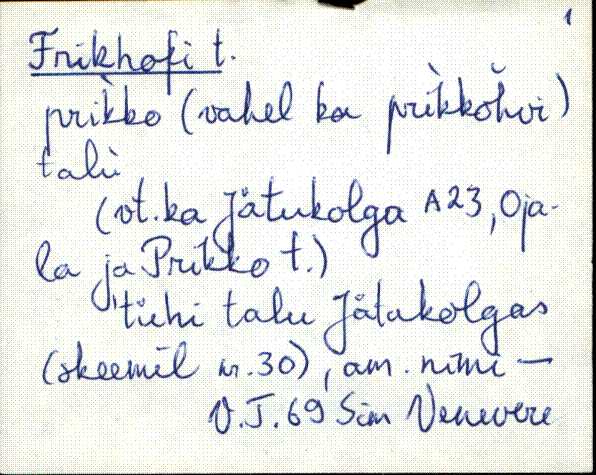 1
Frikhofi t.
prìkko (vahel ka prìkkŏhvi)
talù
(vt. ka Jätukolga A23, Oja-
la ja Prikko t.)
tühi talu Jätakolgas
(skeemil nr. 30), am. nimi —
V.J. 69 Sim Venevere